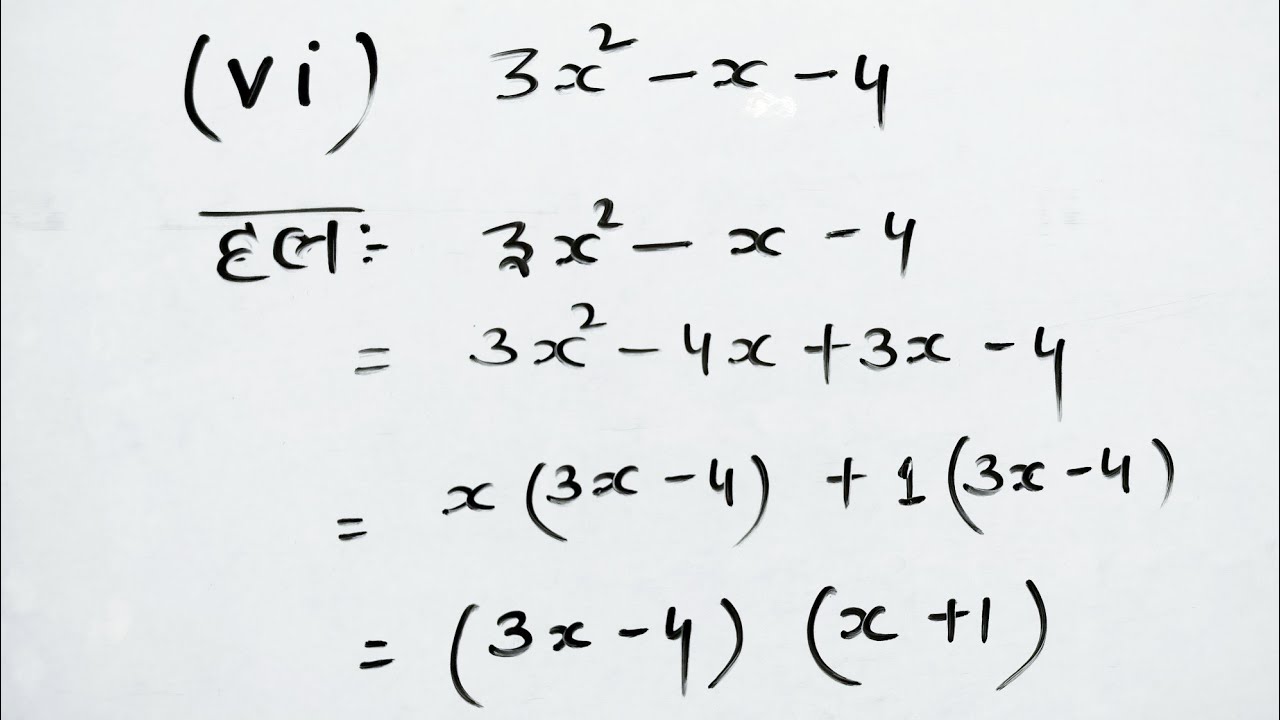 (vi) 3x² - x - 4
हल:- 3x² - x - 4
= 3x² - 4x + 3x - 4
= x(3x - 4) + 1(3x - 4)
= (3x - 4) (x + 1)